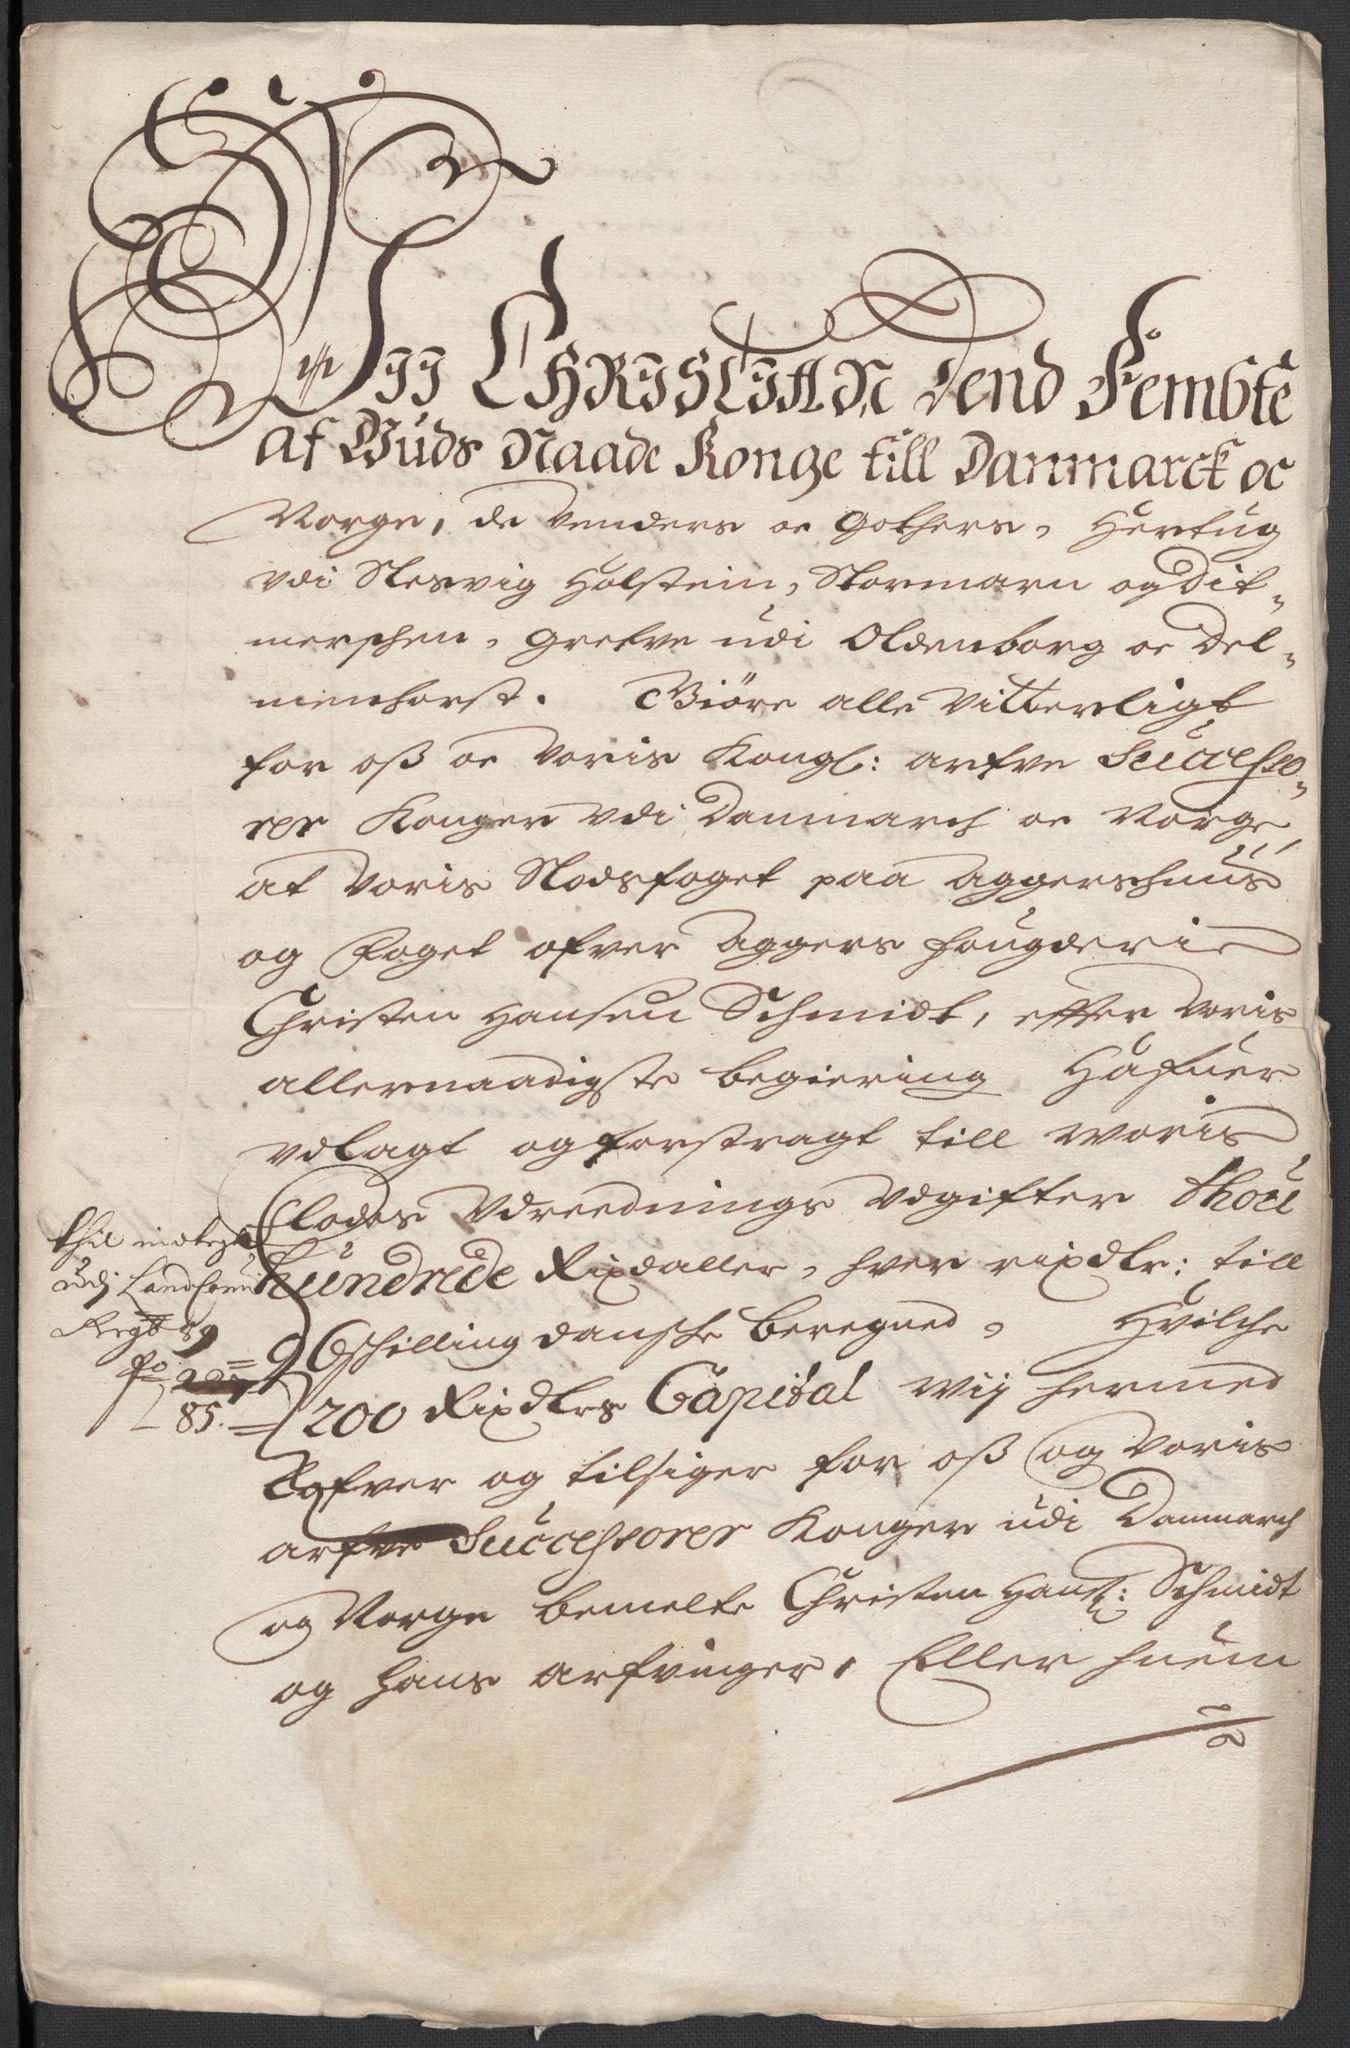 Wij CHRISTIAN Dend Fembte
af Guds Naade Konge till Danmarck oc
Norge, de Venders oc Gothers, Hertug
vdi Slesvig Holstein, Stormarn og Dit-
merschen, Grefve udi Oldenborg oc Del-
menhorst. Giöre alle Vitterligt
for oß oc Voris Kongl: arfve Successo-
rer Konger vdi Danmarch oc Norge,
at Voris Slodsfoget paa Aggershuus
og Foget ofver Aggers fougderie
Christen Hansen Schmidt, effter Voris
allernaadigste begiering Hafuer
vdlagt og forstragt till Woris
Flodes Vdreednings Vdgifter thou
hundrede Rixdaller, hver rixdlr: till
6 schilling dansche beregned, Hvilche
200 Rixdlrs Capital Wij hermed
Lofver og tilsiger for oß og Voris
arfve Successorer Konger udi Danmarch
og Norge bemelte Christen Hans: Schmidt
og hans arfvinger, Eller huem
udj
85.